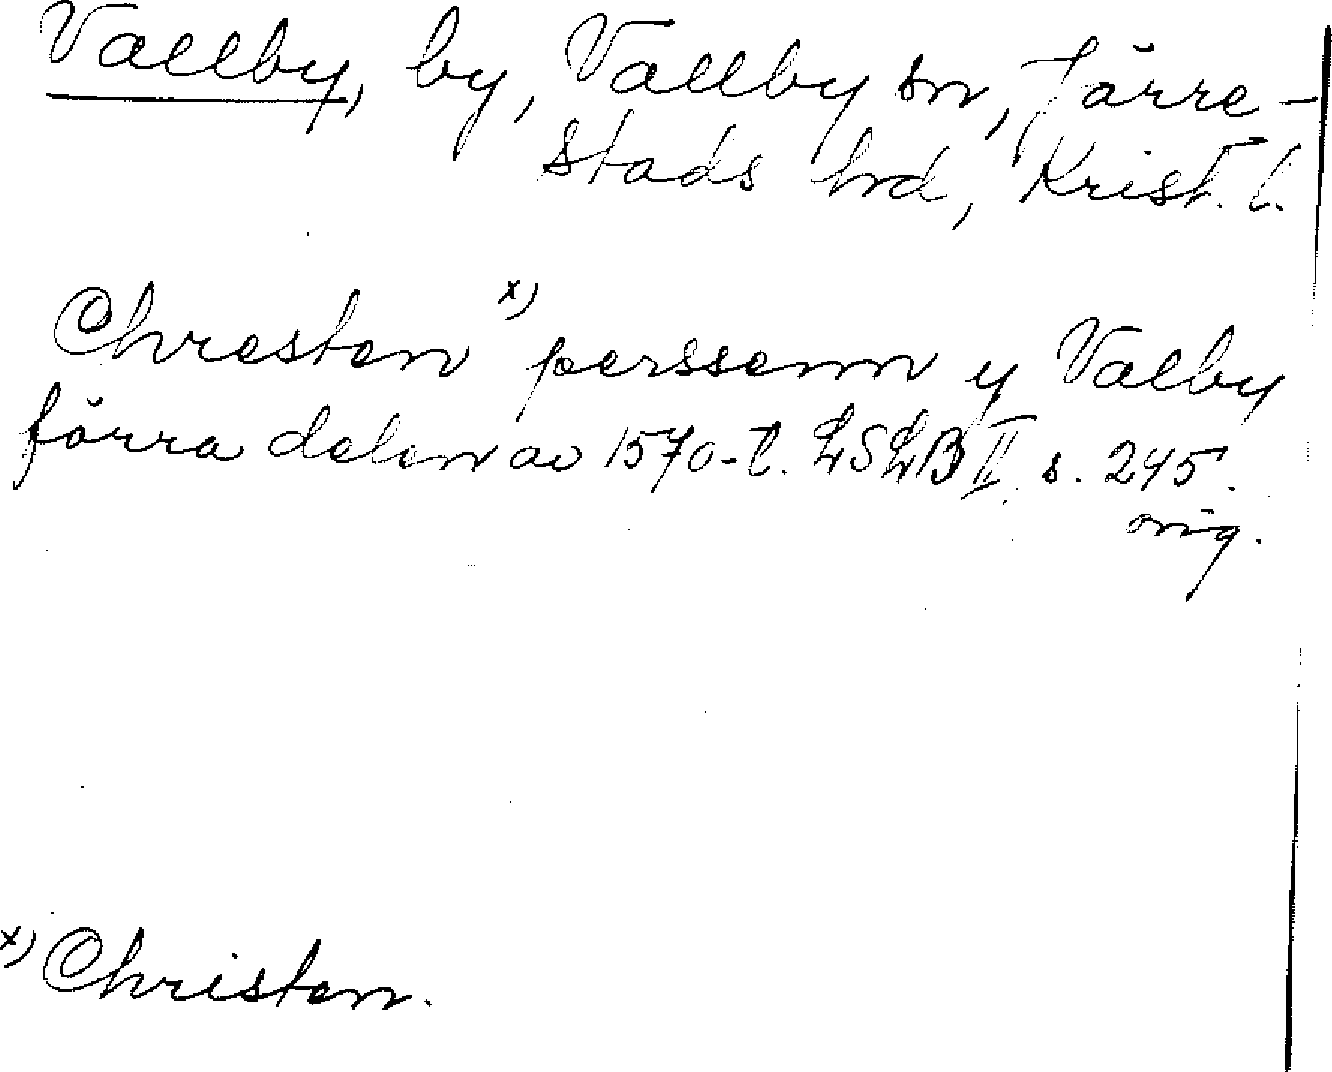 Vallby, by, Vallby sn, Järre-
stads hrd, Krist. l.
Chresten x) perssenn y Valby
förra delen av 1570-t. LSLB II s. 245.
orig.
x) Christen.